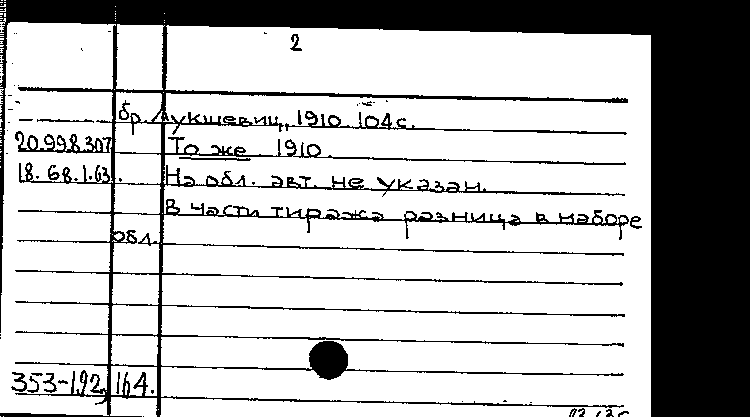 2
бр. Лукшевиц, 1910. 104 с.
20.998.307 То же 1910.
18.68.1.63. На обл. авт. не указан.
В части тиража разница в наборе
обл.
353-192, 164.